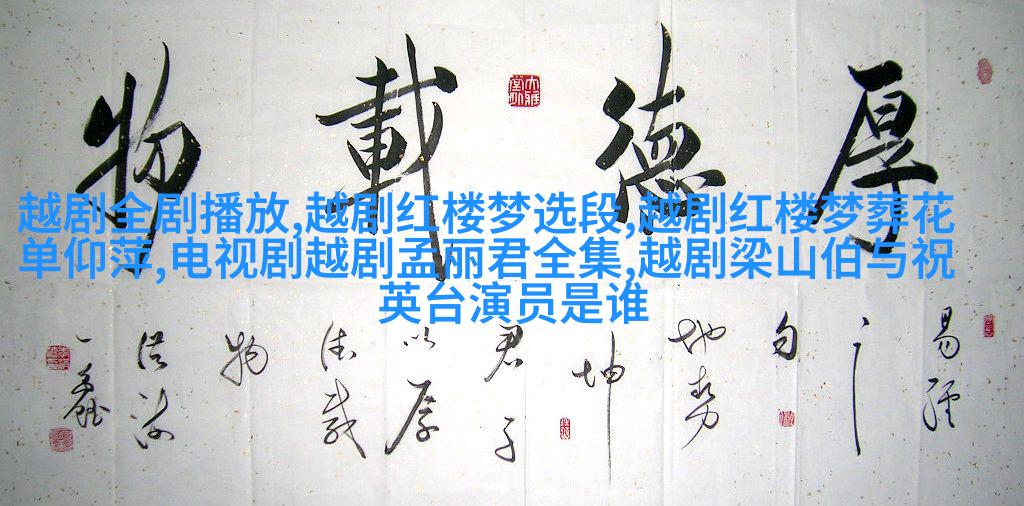 厚德載物
越剧全剧播放,越剧红楼梦选段,越剧红楼梦葬花
单仰萍,电视剧越剧孟丽君全集,越剧梁山伯与祝
英台演员是谁
易經
之
句
地势
坤
君子
以厚
德載
物